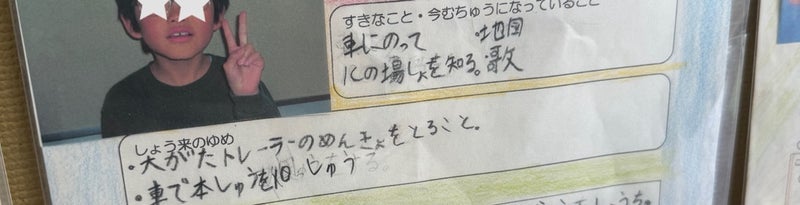 すきなこと・今むちゅうになっていること
車にのって ・地図
ICの場しょを知る。・歌
しょう来のゆめ
・大がたトレーラーのめんきょをとること。
・車で本しゅうを1日 しゅう する。